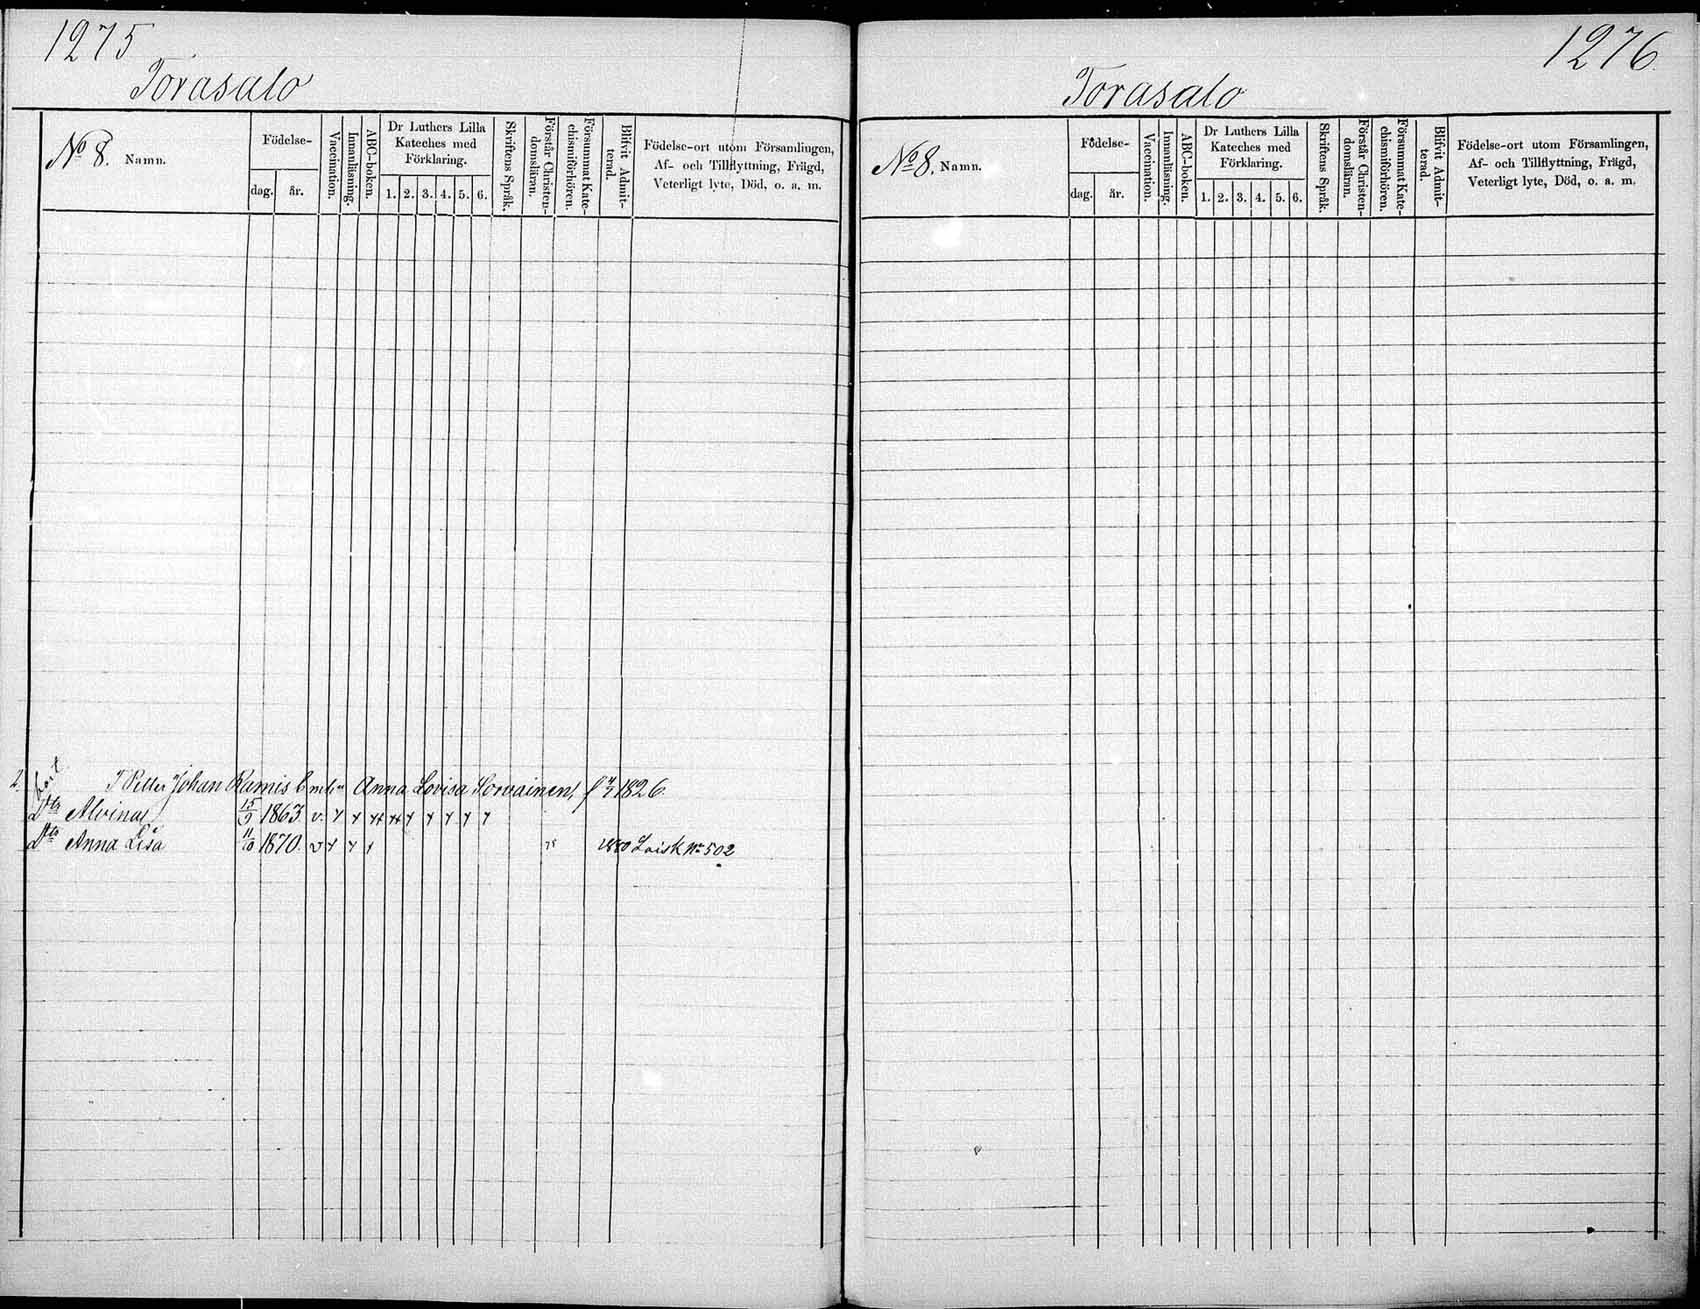 1275
Torasalo
No 8. Namn.
Födelse-
dag. år.
Vaccination.
Innanläsning.
ABC-boken.
Dr Luthers Lilla
Kateches med
Förklaring.
1. 2. 3. 4. 5. 6.
Skriftens Språk.
Förstår Christen-
domsläran.
Försummat Kate-
chismiförhören.
Blifvit Admit-
terad.
Födelse-ort utom Församlingen,
Af- och Tillflyttning, Frägd,
Veterligt lyte, Död, o. a. m.
2.
Petter Johan Anna Lovisa Sorvainen, 1826.
Dtr Alvina 15/9 1863. v.
Dtr Anna Lisa 11/10 1870. v 75 1880 Loisk No 502
1276
Torasalo
No 8. Namn.
Födelse-
dag. år.
Vaccination.
Innanläsning.
ABC-boken.
Dr Luthers Lilla
Kateches med
Förklaring.
1. 2. 3. 4. 5. 6.
Skriftens Språk.
Förstår Christen-
domsläran.
Försummat Kate-
chismiförhören.
Blifvit Admit-
terad.
Födelse-ort utom Församlingen,
Af- och Tillflyttning, Frägd,
Veterligt lyte, Död, o. a. m.